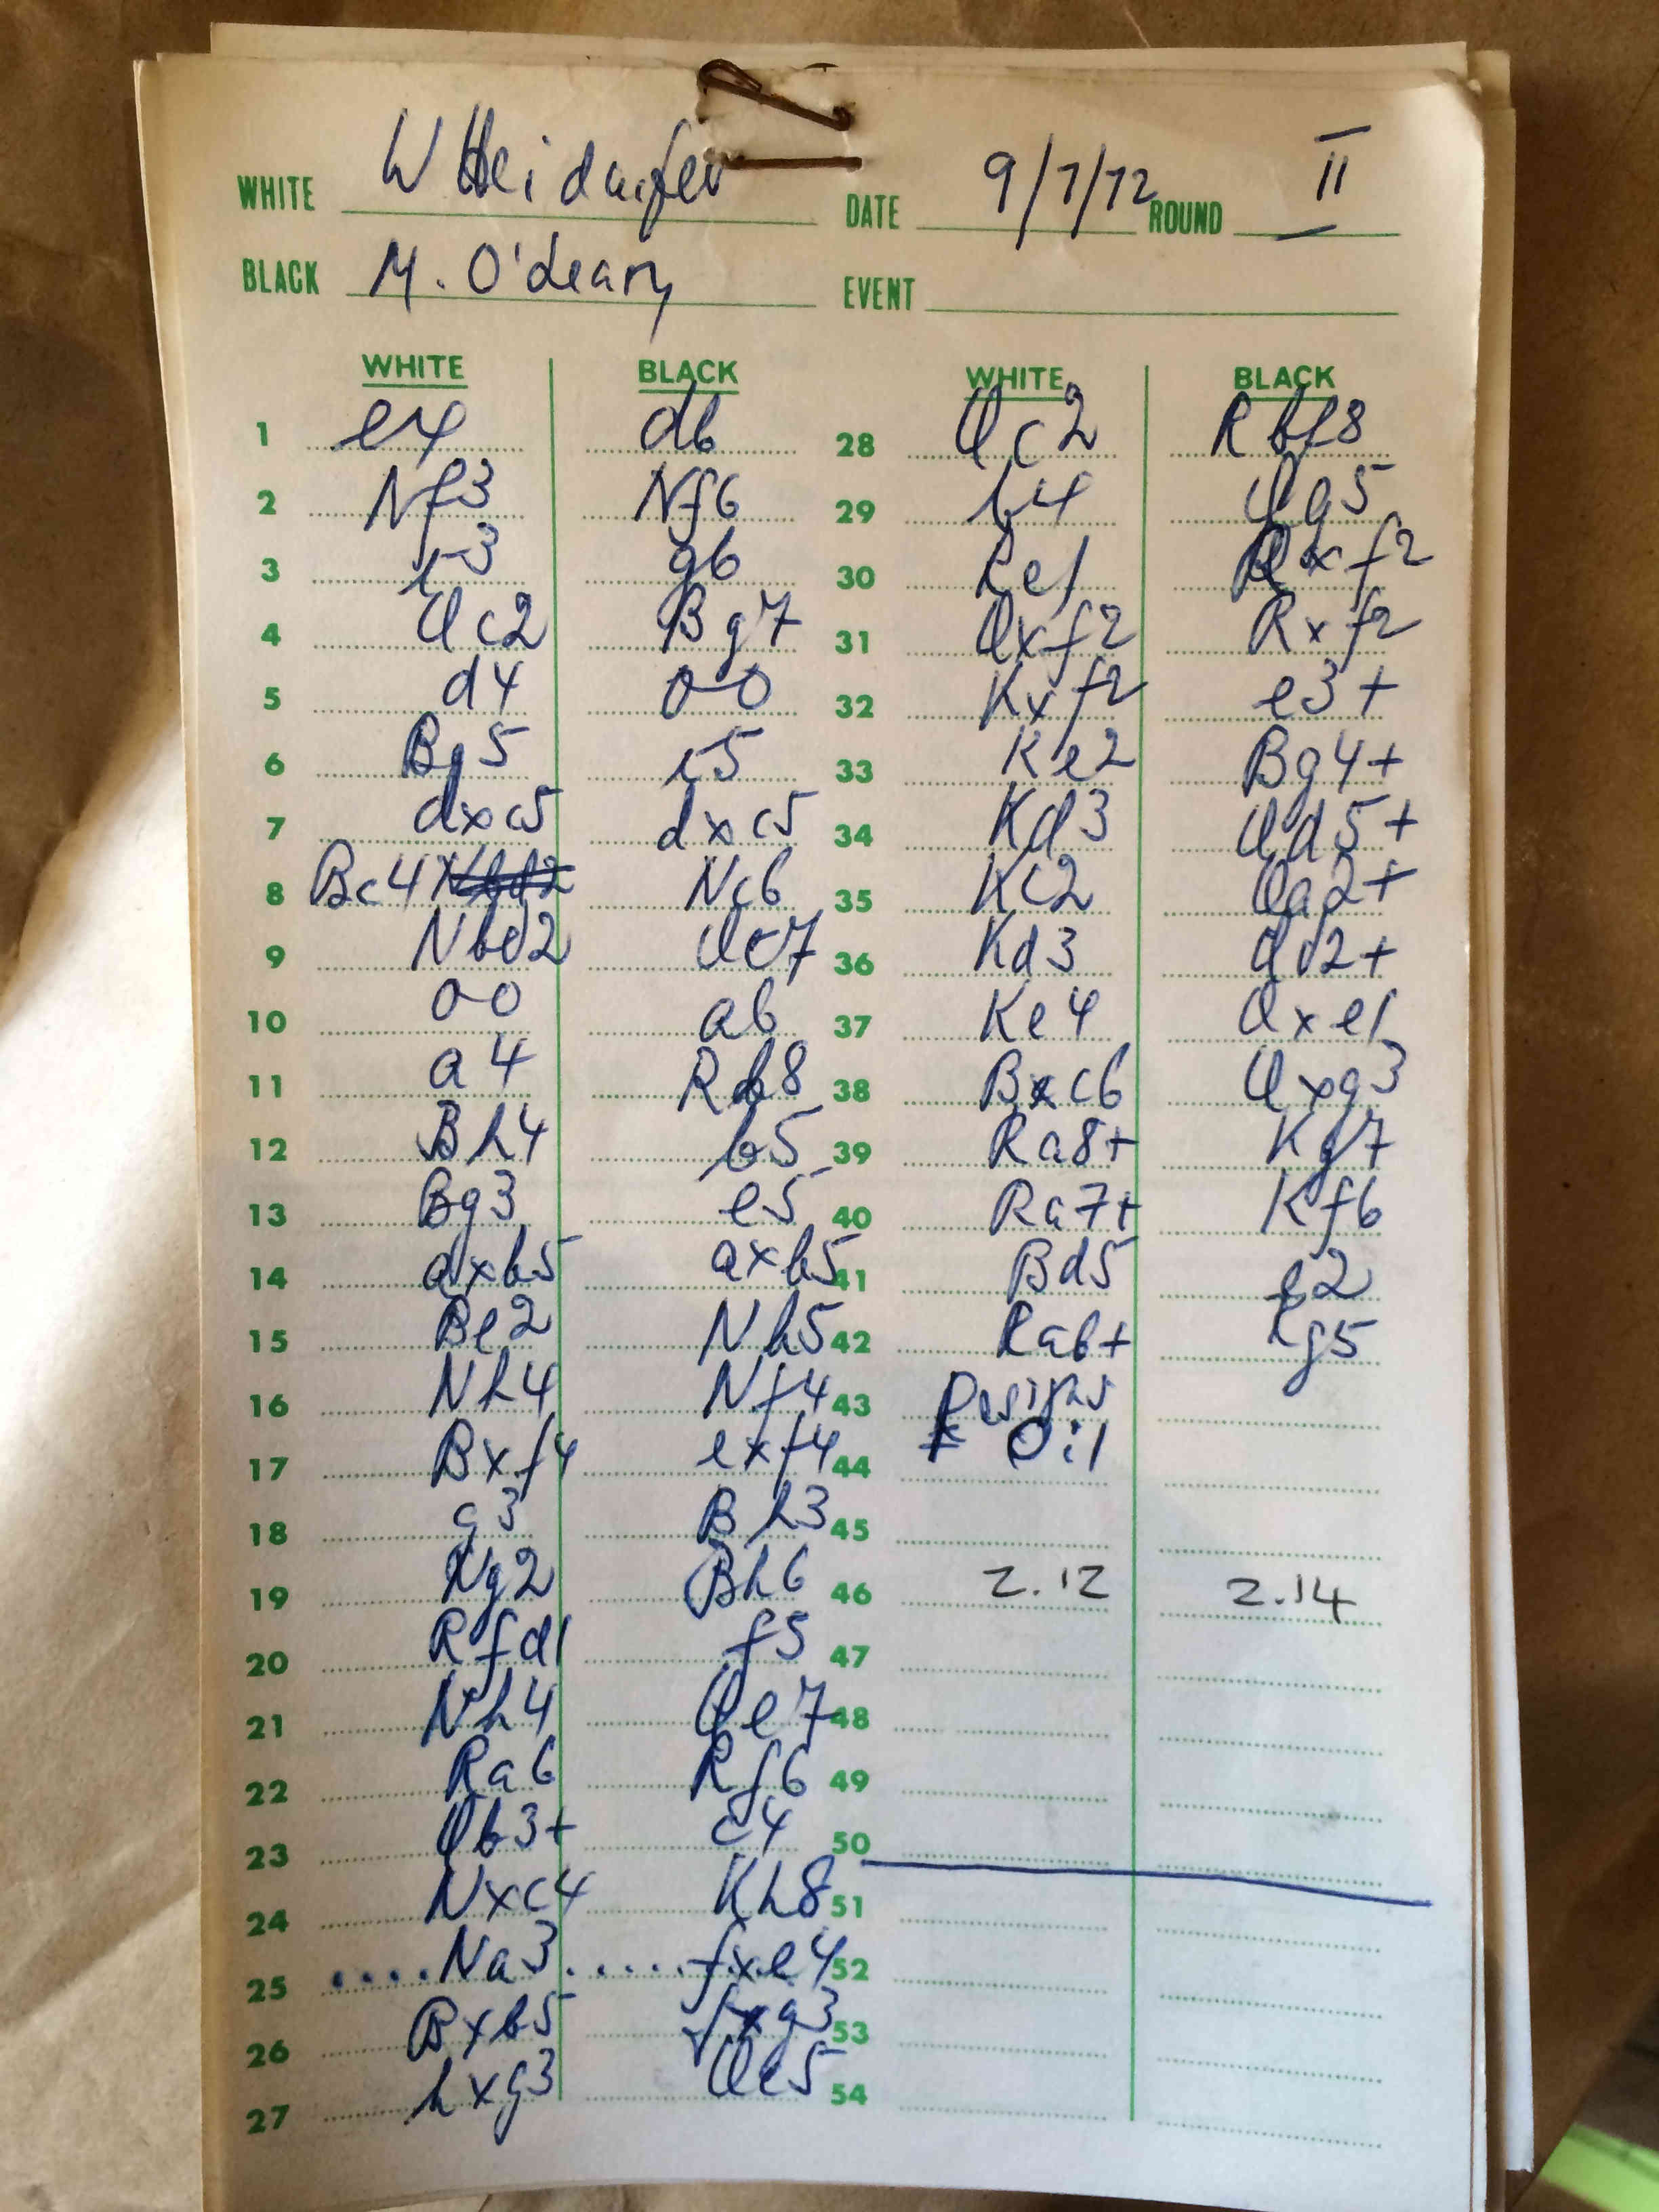 WHITE W Heidenfeld DATE 9/7/72 ROUND II
BLACK M. O'Leary EVENT
WHITE BLACK WHITE BLACK
1 e4 d6 28 Qc2 Rbf8
2 Nf3 Nf6 29 b4 Qg5
3 c3 g6 30 Re1 Qxf2
4 Qc2 Bg7 31 Qxf2 Rxf2
5 d4 0-0 32 Kxf2 e3+
6 Bg5 c5 33 Ke2 Bg4+
7 dxc5 dxc5 34 Kd3 Qd5+
8 Bc4 Nbd2 Nc6 35 Kc2 Qa2+
9 Nbd2 Qc7 36 Kd3 Qd2+
10 0-0 a6 37 Ke4 Qxe1
11 a4 Rb8 38 Bxc6 Qxg3
12 Bh4 b5 39 Ra8+ Kg7
13 Bg3 e5 40 Ra7+ Kf6
14 axb5 axb5 41 Bd5 e2
15 Be2 Nh5 42 Ra6+ Kg5
16 Nh4 Nf4 43 Resigns
17 Bxf4 exf4 44 0:1
18 g3 Bh3 45
19 Ng2 Bh6 46 2.12 2.14
20 Rfd1 f5 47
21 Nh4 Qe7 48
22 Ra6 Rf6 49
23 Qb3+ c4 50
24 Nxc4 Kh8 51
25 ....Na3.....fxe4 52
26 Bxb5 fxg3 53
27 hxg3 Qc5 54